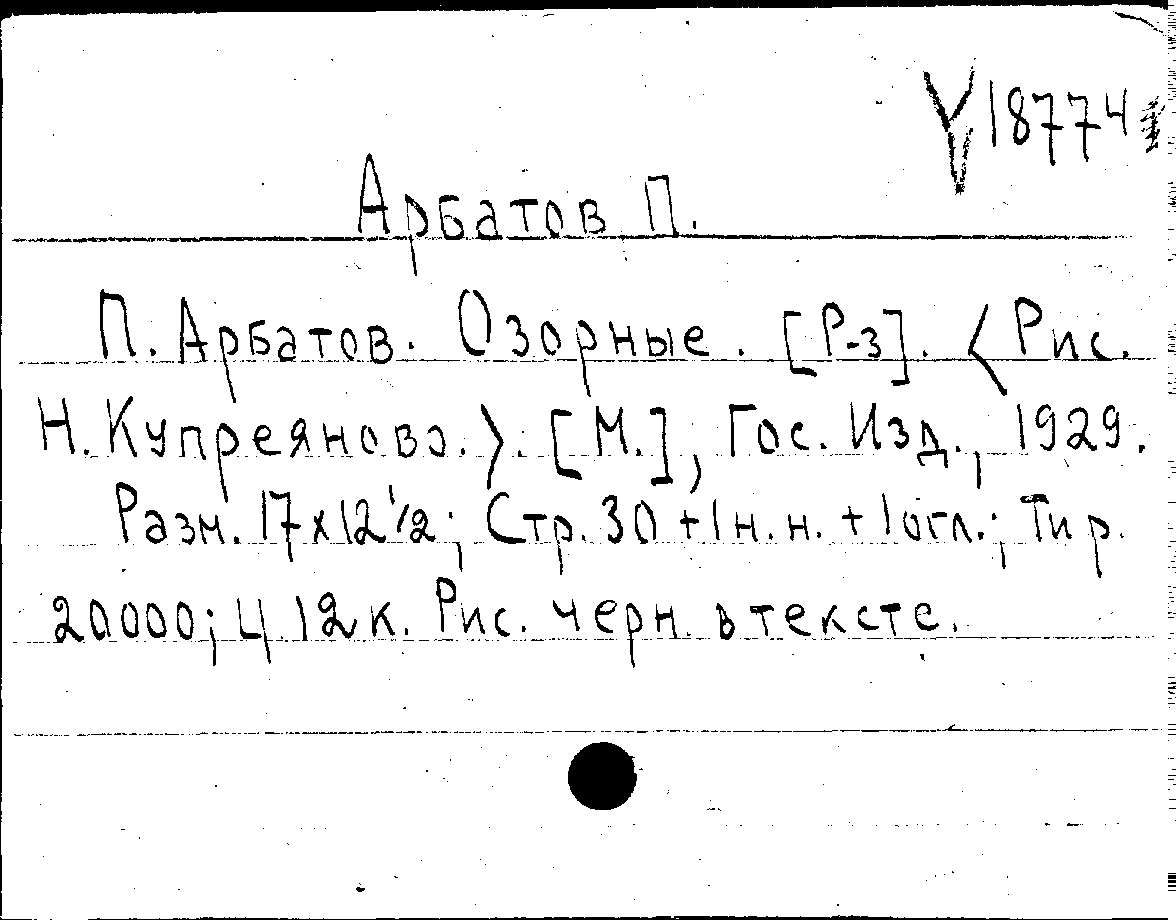 V 18774
Арбатов П.
П. Арбатов. Озорные. [Р-з]. <Рис.
Н. Купреянова.>. [М.], Гос. Изд., 1929.
Разм. 17х12 1/2; Стр. 30 + 1 н. н. + 1 огл.; Тир.
20000; Ц 12 к. Рис. черн. в тексте.